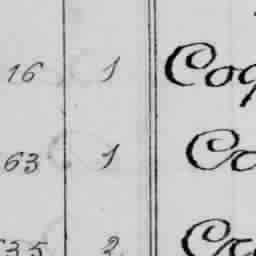 16 1 Coq
63 1 Co
35 2